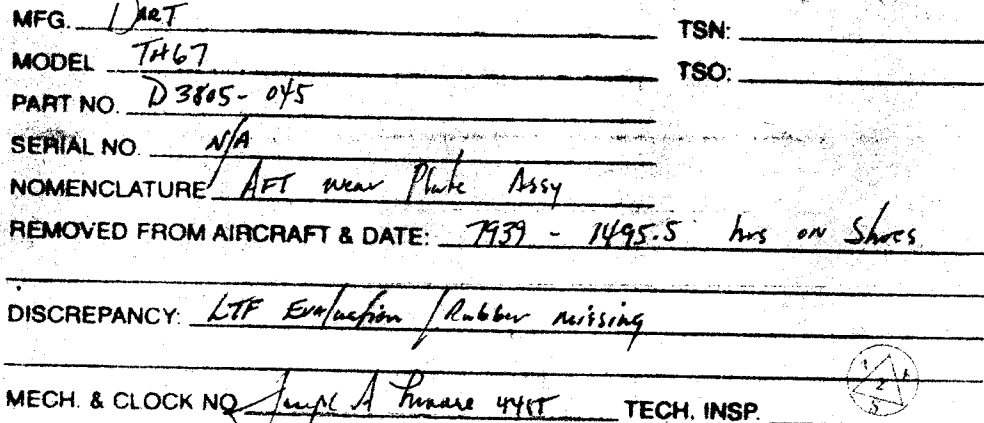 MFG. DART
TSN:
MODEL TH67
TSO:
PART NO. D3805-045
SERIAL NO. N/A
NOMENCLATURE AFT wear Plate Assy
REMOVED FROM AIRCRAFT & DATE: 7939 - 1495.5 hrs on Shoes
DISCREPANCY: LTF Evaluation / Rubber missing
MECH. & CLOCK NO A TECH. INSP.